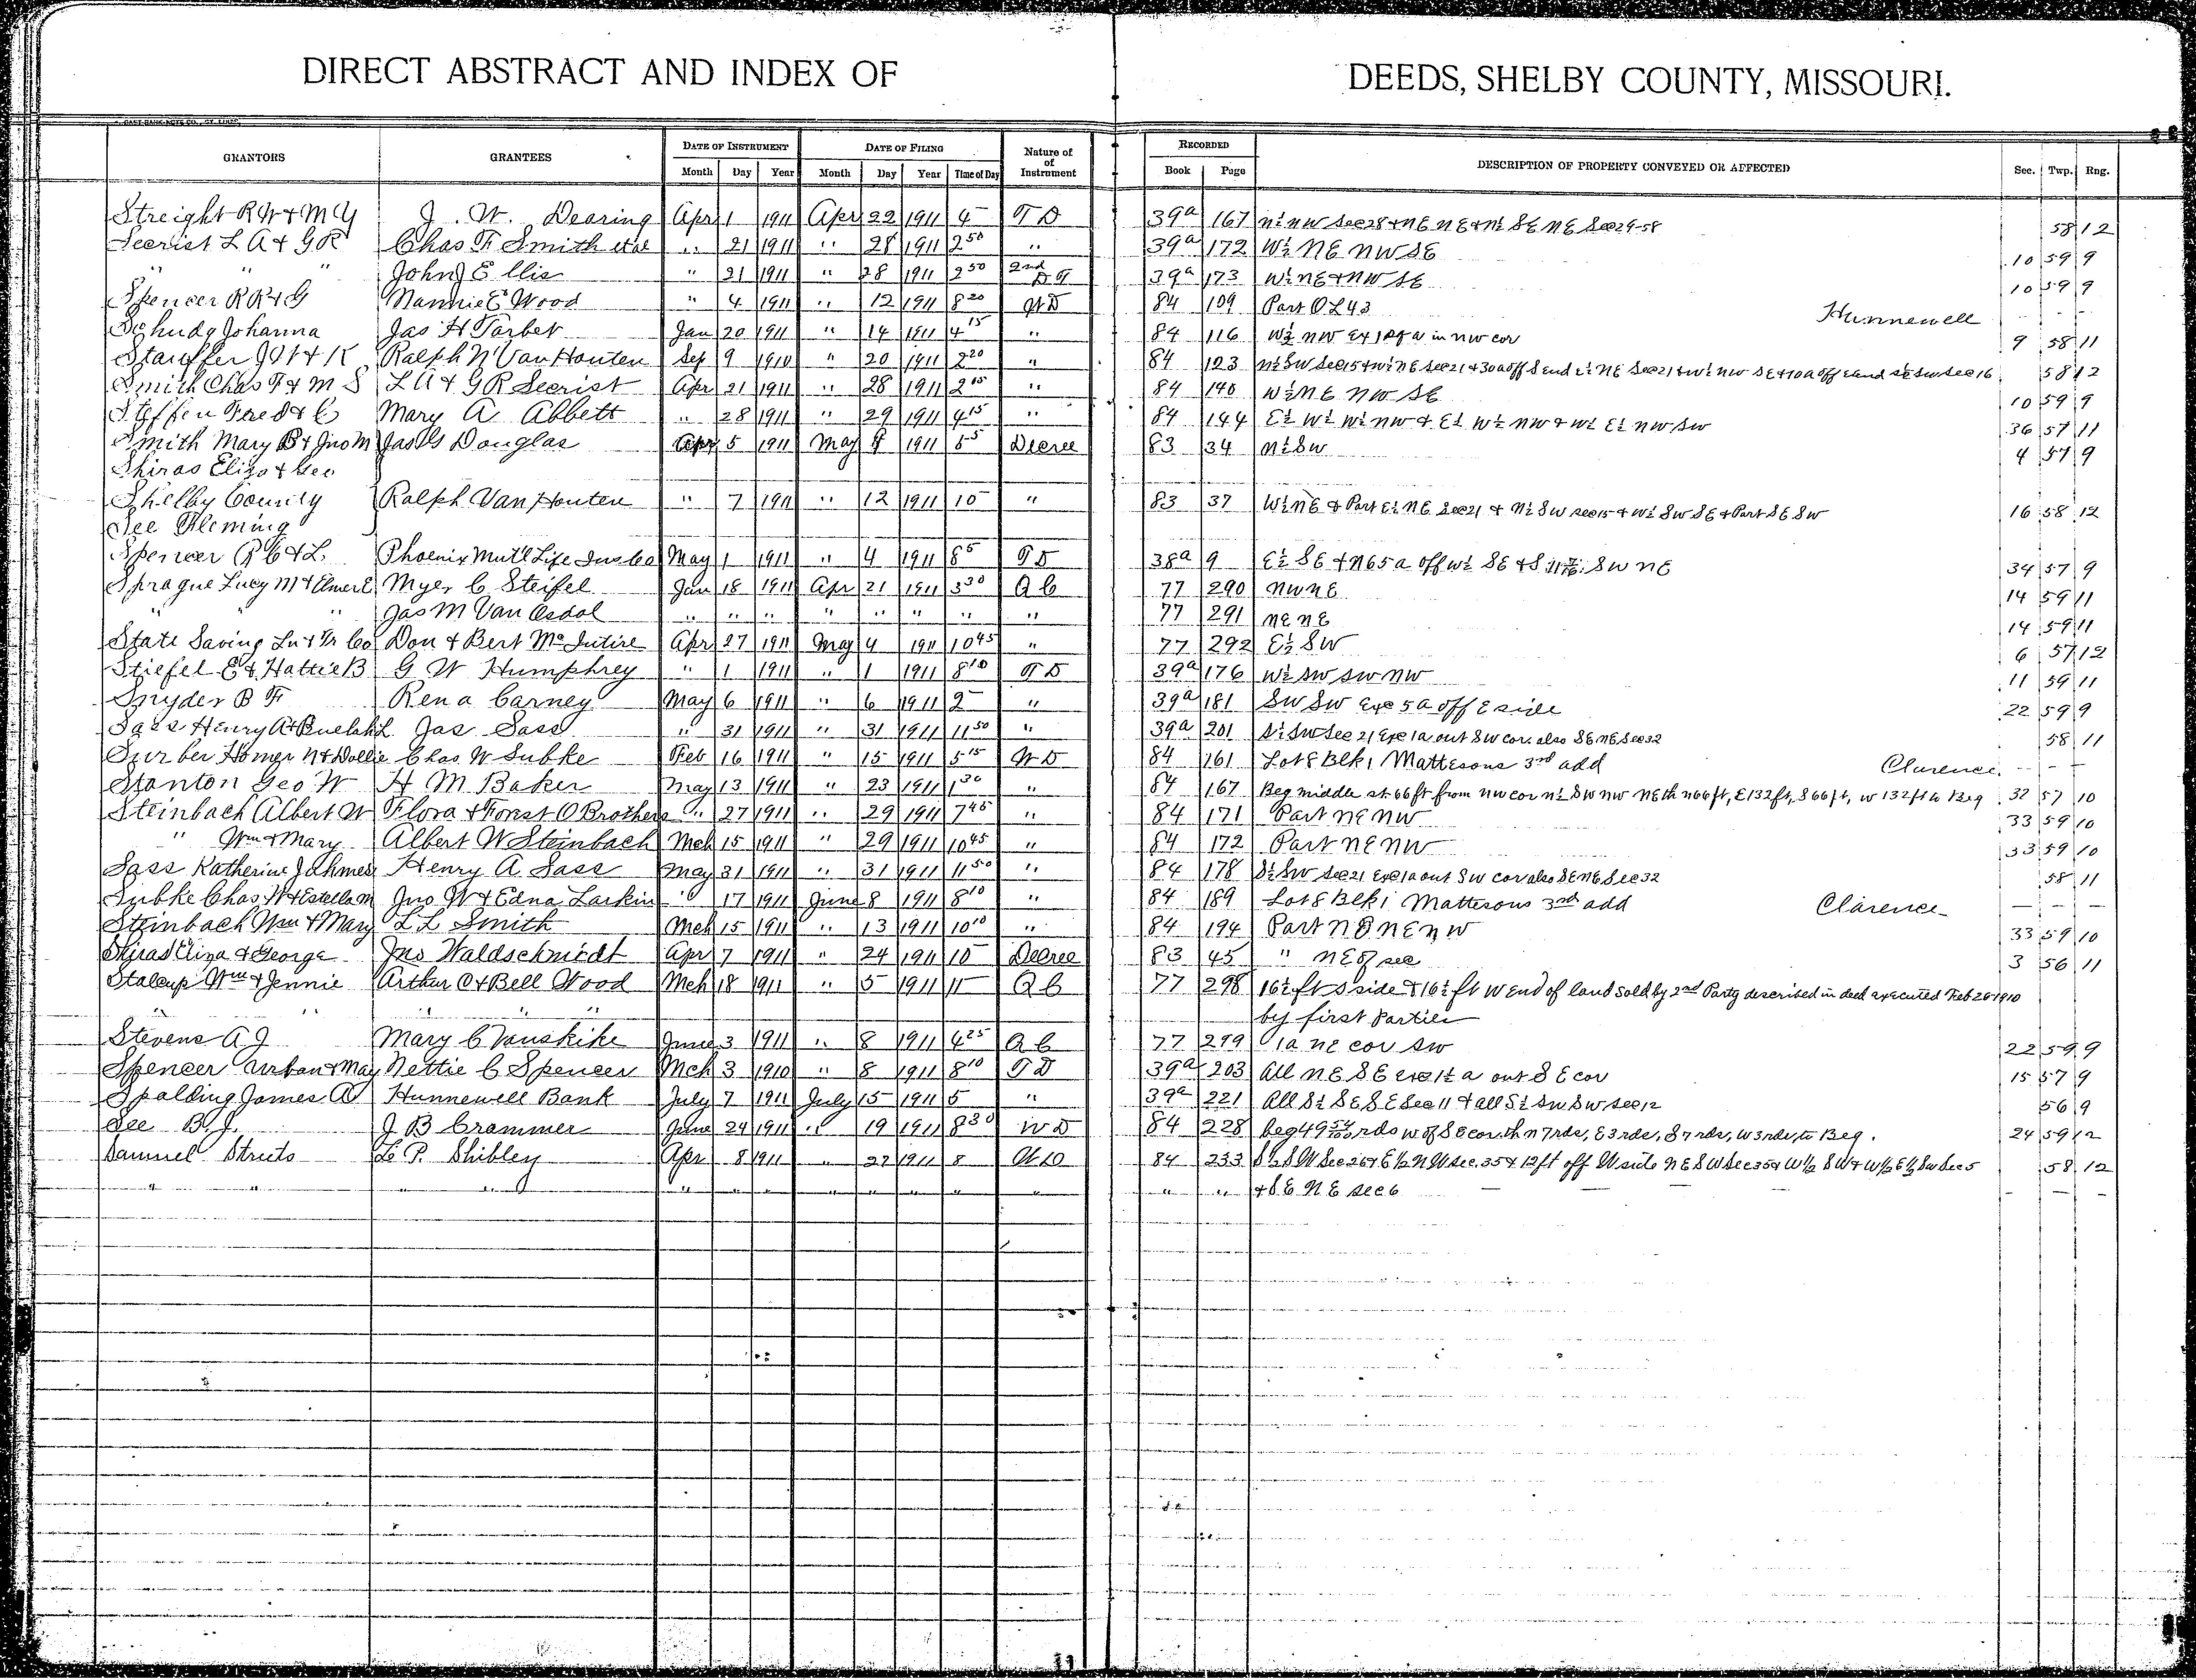 DIRECT ABSTRACT AND INDEX OF DEEDS, SHELBY COUNTY, MISSOURI.
GRANTORS GRANTEES DATE OF INSTRUMENT DATE OF FILING Nature of of Instrument RECORDED DESCRIPTION OF PROPERTY CONVEYED OR AFFECTED Sec. Twp. Rng.
Month Day Year Month Day Year Time of Day Book Page
Streight R W & M Y J. W. Dearing Apr 1 1911 Apr 22 1911 4 T D 39a 167 N½ NW Sec 28 & NE NE & N½ SE NE Sec 29-58 58 12
Secrist L A & G R Chas F Smith et al " 21 1911 " 28 1911 2 50 " 39a 172 W½ NE NW SE 10 59 9
" " " John J Ellis " 21 1911 " 28 1911 2 50 2nd D T 39a 173 W½ NE & NW SE 10 59 9
Spencer R R & G Mannie E Wood " 4 1911 " 12 1911 8 20 W D 84 109 Part O L 43 Hunnewell
Schudy Johanna Jas H Tarbet Jan 20 1911 " 14 1911 4 15 " 84 116 W½ NW Ex 1 in NW cor 9 58 11
Stauffer J N & K Ralph N Van Houten Sep 9 1910 " 20 1911 2 20 " 84 123 N½ SW Sec 15 & W½ NE Sec 21 & 30a off S end E½ NE Sec 21 & W½ NW SE & 10a off E end SE SW Sec 16 58 12
Smith Chas F & M S L A & G R Secrist Apr 21 1911 " 28 1911 2 15 " 84 140 W½ NE NW SE 10 59 9
Steffen Fred & C Mary A Abbett " 28 1911 " 29 1911 4 15 " 84 144 E½ W½ W½ NW & E½ W½ NW & W½ E½ NW SW 36 57 11
Smith Mary B & Jno M Jas G Douglas Apr 5 1911 May 9 1911 5 5 Decree 83 34 N½ SW 4 57 9
Shiras Eliza & Geo
Shelby County Ralph Van Houten " 7 1911 " 12 1911 10 " 83 37 W½ NE & Part E½ NE Sec 21 & N½ SW Sec 15 & W½ SW SE & Part SE SW 16 58 12
See Fleming
Spencer R E & L Phoenix Mut'l Life Ins Co May 1 1911 " 4 1911 8 5 T D 38a 9 E½ SE & N 65 a off W½ SE & S SW NE 34 57 9
Sprague Lucy M & Elmer E Myer C Steifel Jan 18 1911 Apr 21 1911 3 30 Q C 77 290 NW NE 14 59 11
" " Jas M Van Osdol " " " " " " " 77 291 NE NE 14 59 11
State Saving Ln & Tr Co Don & Bert McIntire Apr 27 1911 May 4 1911 10 45 " 77 292 E½ SW 6 57 12
Stiefel E & Hattie B G W Humphrey " 1 1911 " 1 1911 8 10 T D 39a 176 W½ SW SW NW 11 59 11
Snyder B F Rena Carney May 6 1911 " 6 1911 2 " 39a 181 SW SW Exc 5a off E side 22 59 9
Sass Henry A & Buelah L Jas Sass " 31 1911 " 31 1911 11 50 " 39a 201 S½ SW Sec 21 Exc 1a out SW cor. also SE NE Sec 32 58 11
Surber Homer N & Dollie Chas W Subke Feb 16 1911 " 15 1911 5 15 W D 84 161 Lot 8 Blk 1 Mattesons 3rd add Clarence.
Stanton Geo W H M Baker May 13 1911 " 23 1911 1 30 " 84 167 Beg middle st 66 ft from NW cor N½ SW NW NE th N 66 ft, E 132 ft, S 66 ft, W 132 ft to Beg. 32 57 10
Steinbach Albert W Flora & Forist O Brothers " 27 1911 " 29 1911 7 45 " 84 171 Part NE NW 33 59 10
" Wm & Mary Albert W Steinbach Mch 15 1911 " 29 1911 10 45 " 84 172 Part NE NW 33 59 10
Sass Katherine J & Henry A Sass May 31 1911 " 31 1911 11 50 " 84 178 S½ SW Sec 21 Exc 1a out SW cor also SE NE Sec 32 58 11
Subke Chas W & Estella M Jno W & Edna Larkin " 17 1911 June 8 1911 8 10 " 84 189 Lot 8 Blk 1 Mattesons 3rd add Clarence
Steinbach Wm & Mary L L Smith Mch 15 1911 " 13 1911 10 10 " 84 194 Part NE NE NW 33 59 10
Shiras Eliza & George Jno Waldschmidt Apr 7 1911 " 24 1911 10 Decree 83 45 " NE of sec 3 56 11
Stalcup Wm & Jennie Arthur O & Bell Wood Mch 18 1911 " 5 1911 11 Q C 77 298 16½ ft S side & 16½ ft W end of land sold by 2nd Party described in deed executed Feb 26 1910
" " " by first Parties
Stevens A J Mary C Vanskike June 3 1911 " 8 1911 4 25 Q C 77 299 1a NE cor SW 22 59 9
Spencer Urban & May Nettie C Spencer Mch 3 1910 " 8 1911 8 10 T D 39a 203 All NE SE exc 1½ a out SE cor 15 57 9
Spalding James A Hunnewell Bank July 7 1911 July 15 1911 5 " 39a 221 All S½ SE SE Sec 11 & all S½ SW SW Sec 12 56 9
See B. J. J B Crammer June 24 1911 " 19 1911 8 30 W D 84 228 beg 49 rds W of SE cor. th N 7 rds, E 3 rds, S 7 rds, W 3 rds, to Beg. 24 59 12
Samuel Streets L. P. Shibley Apr 8 1911 " 22 1911 8 W D 84 233 S½ SW Sec 26 & E½ NW Sec. 35 & 12 ft off W side NE SW Sec 35 & W½ SW & W½ E½ SW Sec 5 58 12
" " " " " " " " " " " " " & S.E. N.E. Sec 6